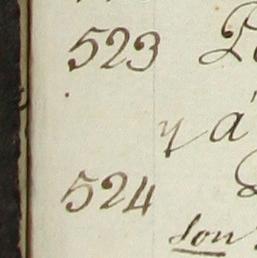 523
y á
524
son